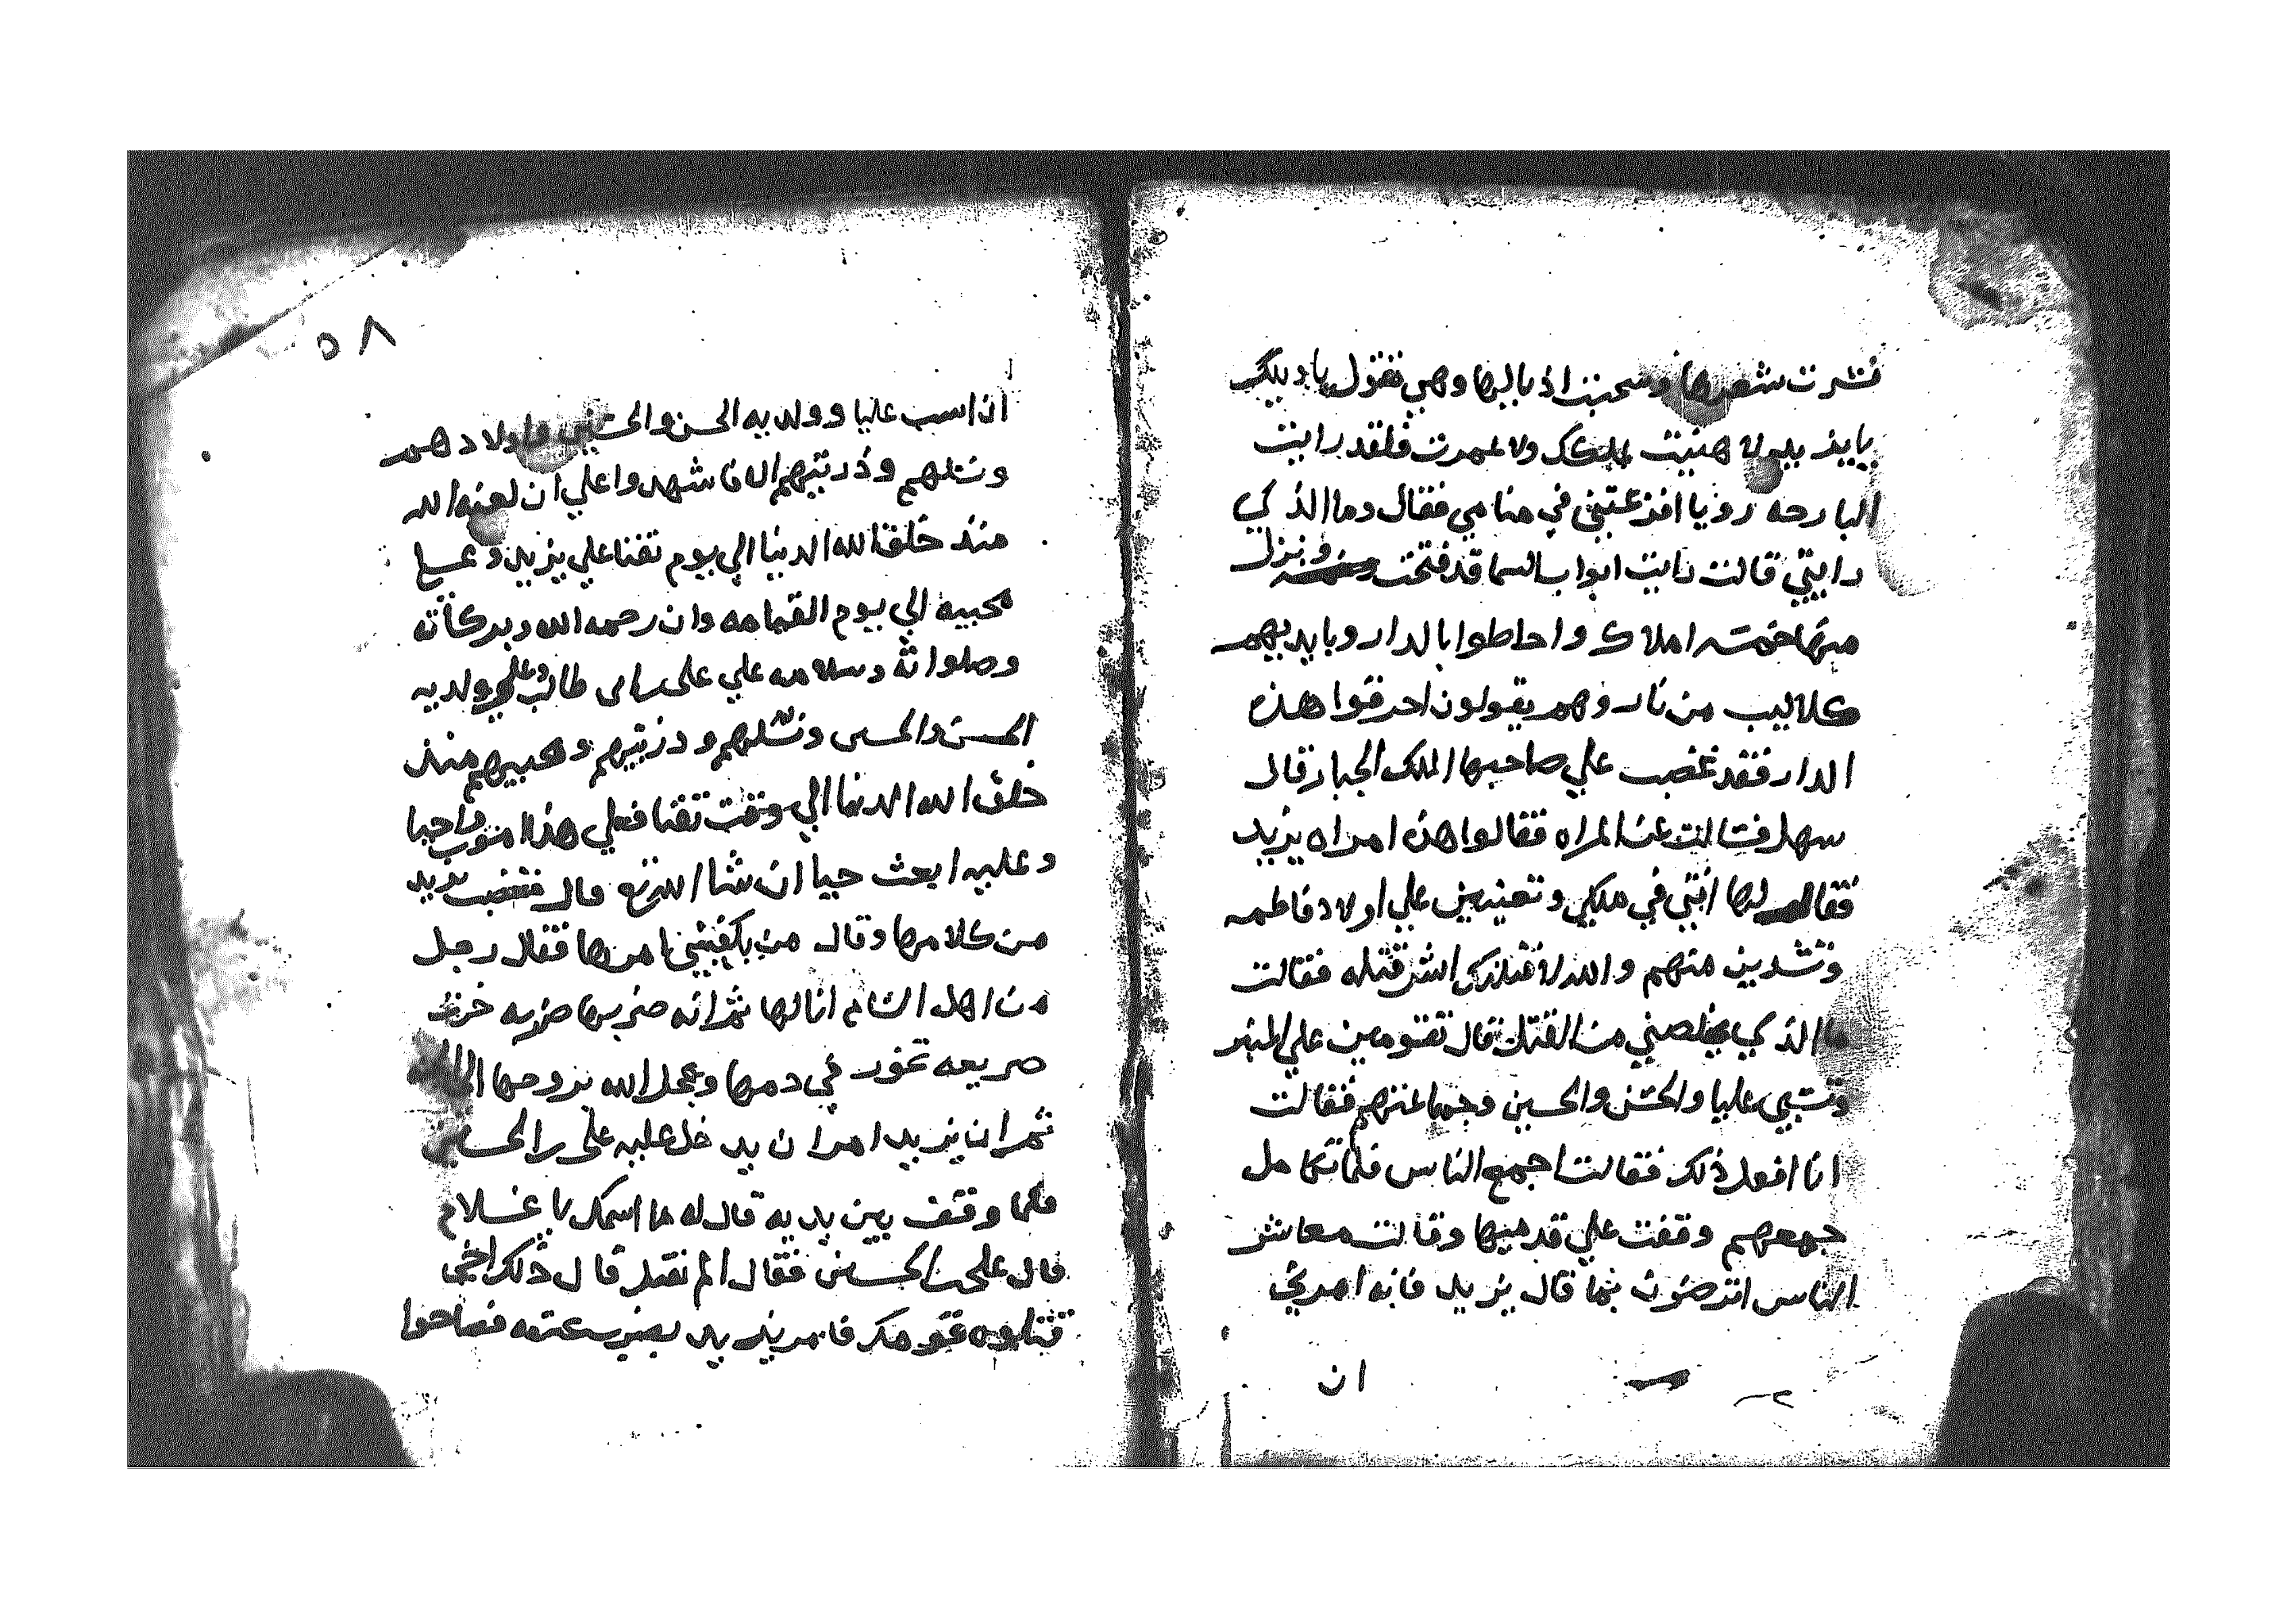 نشرت شعرها وسحبت اذيالها وهي تقول يا ويلك
يايزيد لا هنيت بملكك ولا عمرت فلقد رايت
البارحه رويا افزعتني في منامي فقال وما الذي
رايتي قالت رايت ابواب السما قد فتحت ونزل
منها خمسه املاك واحاطوا بالدار وبايديهم
كلاليب من نار وهم يقولون احرقوا هذه
الدار فقد غضب علي صاحبها الملك الجبار قال
سهل فسالت عن المراه فقالوا هذه امراه يزيد
فقال لها انتي في ملكي وتعيذين علي اولاد فاطمه
والله لاقتلنكي اشر قتله فقالت
ما الذي يخلصني من القتل قال تقومين علي المنبر
وتسبي عليا والحسن والحسين وجماعتهم فقالت
انا افعل ذلك فقالت اجمع الناس فلما تكامل
جمعهم وقفت علي قدميها وقالت معاشر
الناس اترضون بما قال يزيد فانه امرني
ان
٥٨
ان اسب عليا وولديه الحسن والحسين واولادهم
ونسلهم وذريتهم الا فاشهدوا علي ان لعنه الله
منذ خلق الله الدنيا الي يوم تفنا علي يزيد وجميع
محبيه الي يوم القيامه وان رحمه الله وبركاته
وصلواته وسلامه علي على بن ابي طالب وعلي ولديه
الحسن والحسين ونسلهم وذريتهم ومحبيهم منذ
خلق الله الدنيا الي وقت تفنا فعلي هذا اموت واحيا
وعليه ابعث حيا ان شا الله تع قال فغضب يزيد
من كلامها وقال من يكفيني امرها فقال رجل
من اهل الشام انا لها ثم انه ضربها ضربه خرت
صريعه تخور في دمها وعجل الله بروحها الي
ثم ان يزيد امر ان يدخل عليه على بن الحسين
فلما وقف بين يديه قال له ما اسمك يا غلام
قال علي بن الحسين فقال الم نقتله قال ذلك اخي
قتلوه قومك فامر يزيد بضرب عنقه فصاحوا